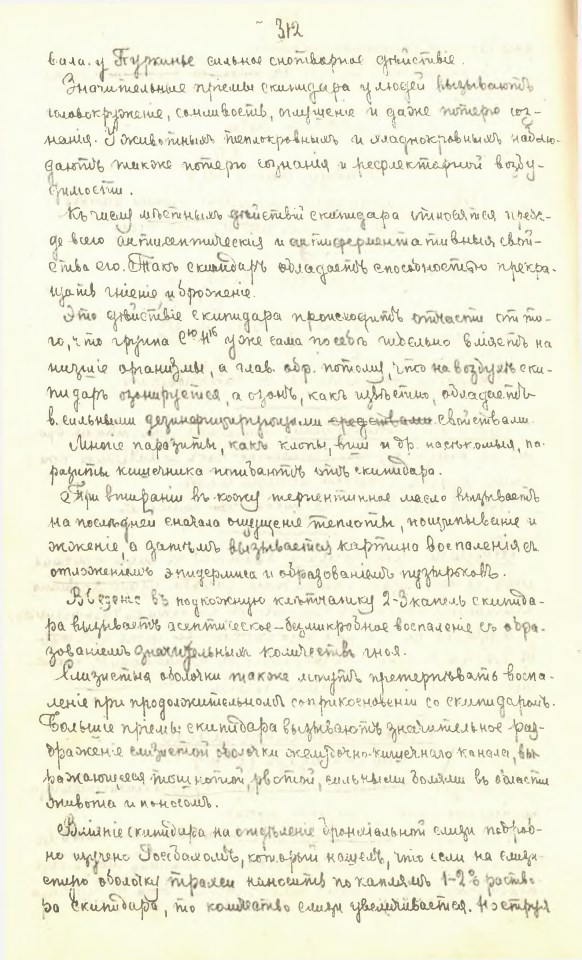 312
вала. у Пуркинье сильное снотворное дѣйствіе.
Значительные пріемы скипидара у людей вызываютъ
головокруженіе, сонливость, оглушеніе и даже потерю соз-
нанія. У животныхъ теплокровныхъ и хладнокровныхъ наблю-
даютъ также потерю сознанія и рефлекторной возбу-
димости.
Къ числу мѣстныхъ дѣйствій скипидара относятся преж-
де всего антисептическія и антиферментативныя свой-
ства его. Такъ скипидаръ обладаетъ способностью прекра-
щать гніеніе и броженіе.
Это дѣйствіе скипидара происходитъ отчасти отъ то-
го, что группа C¹⁰H¹⁶ уже сама по себѣ гибельно вліяетъ на
низшіе организмы, а глав. обр. потому, что на воздухѣ ски-
пидаръ озонируется, а озонъ, какъ извѣстно, обладаетъ
в. сильными дезинфицирующими средствами свойствами.
Многіе паразиты, какъ клопы, вши и др. насѣкомыя, па-
разиты кишечника погибаютъ отъ скипидара.
При втираніи въ кожу терпентинное масло вызываетъ
на послѣдней сначала ощущеніе теплоты, пощипываніе и
жженіе, а затѣмъ вызывается картина воспаленія съ
отложеніемъ эпидермиса и образованіемъ пузырьковъ.
Введеніе въ подкожную клѣтчатку 2-3 капель скипида-
ра вызываетъ асептическое – безмикробное воспаленіе съ обра-
зованіемъ значительныхъ количествъ гноя.
Слизистыя оболочки также могутъ претерпѣвать воспа-
леніе при продолжительномъ соприкосновеніи со скипидаромъ.
Большіе пріемы скипидара вызываютъ значительное раз-
драженіе слизистой оболочки желудочно-кишечнаго канала, вы-
ражающееся тошнотой, рвотой, сильными болями въ области
живота и поносомъ.
Вліяніе скипидара на отдѣленіе бронхіальной слизи подроб-
но изучено Россбахомъ, который нашелъ, что если на слизи-
стую оболочку трахеи наносить по каплямъ 1-2% раство-
ра скипидара, то количество слизи увеличивается. Но струя